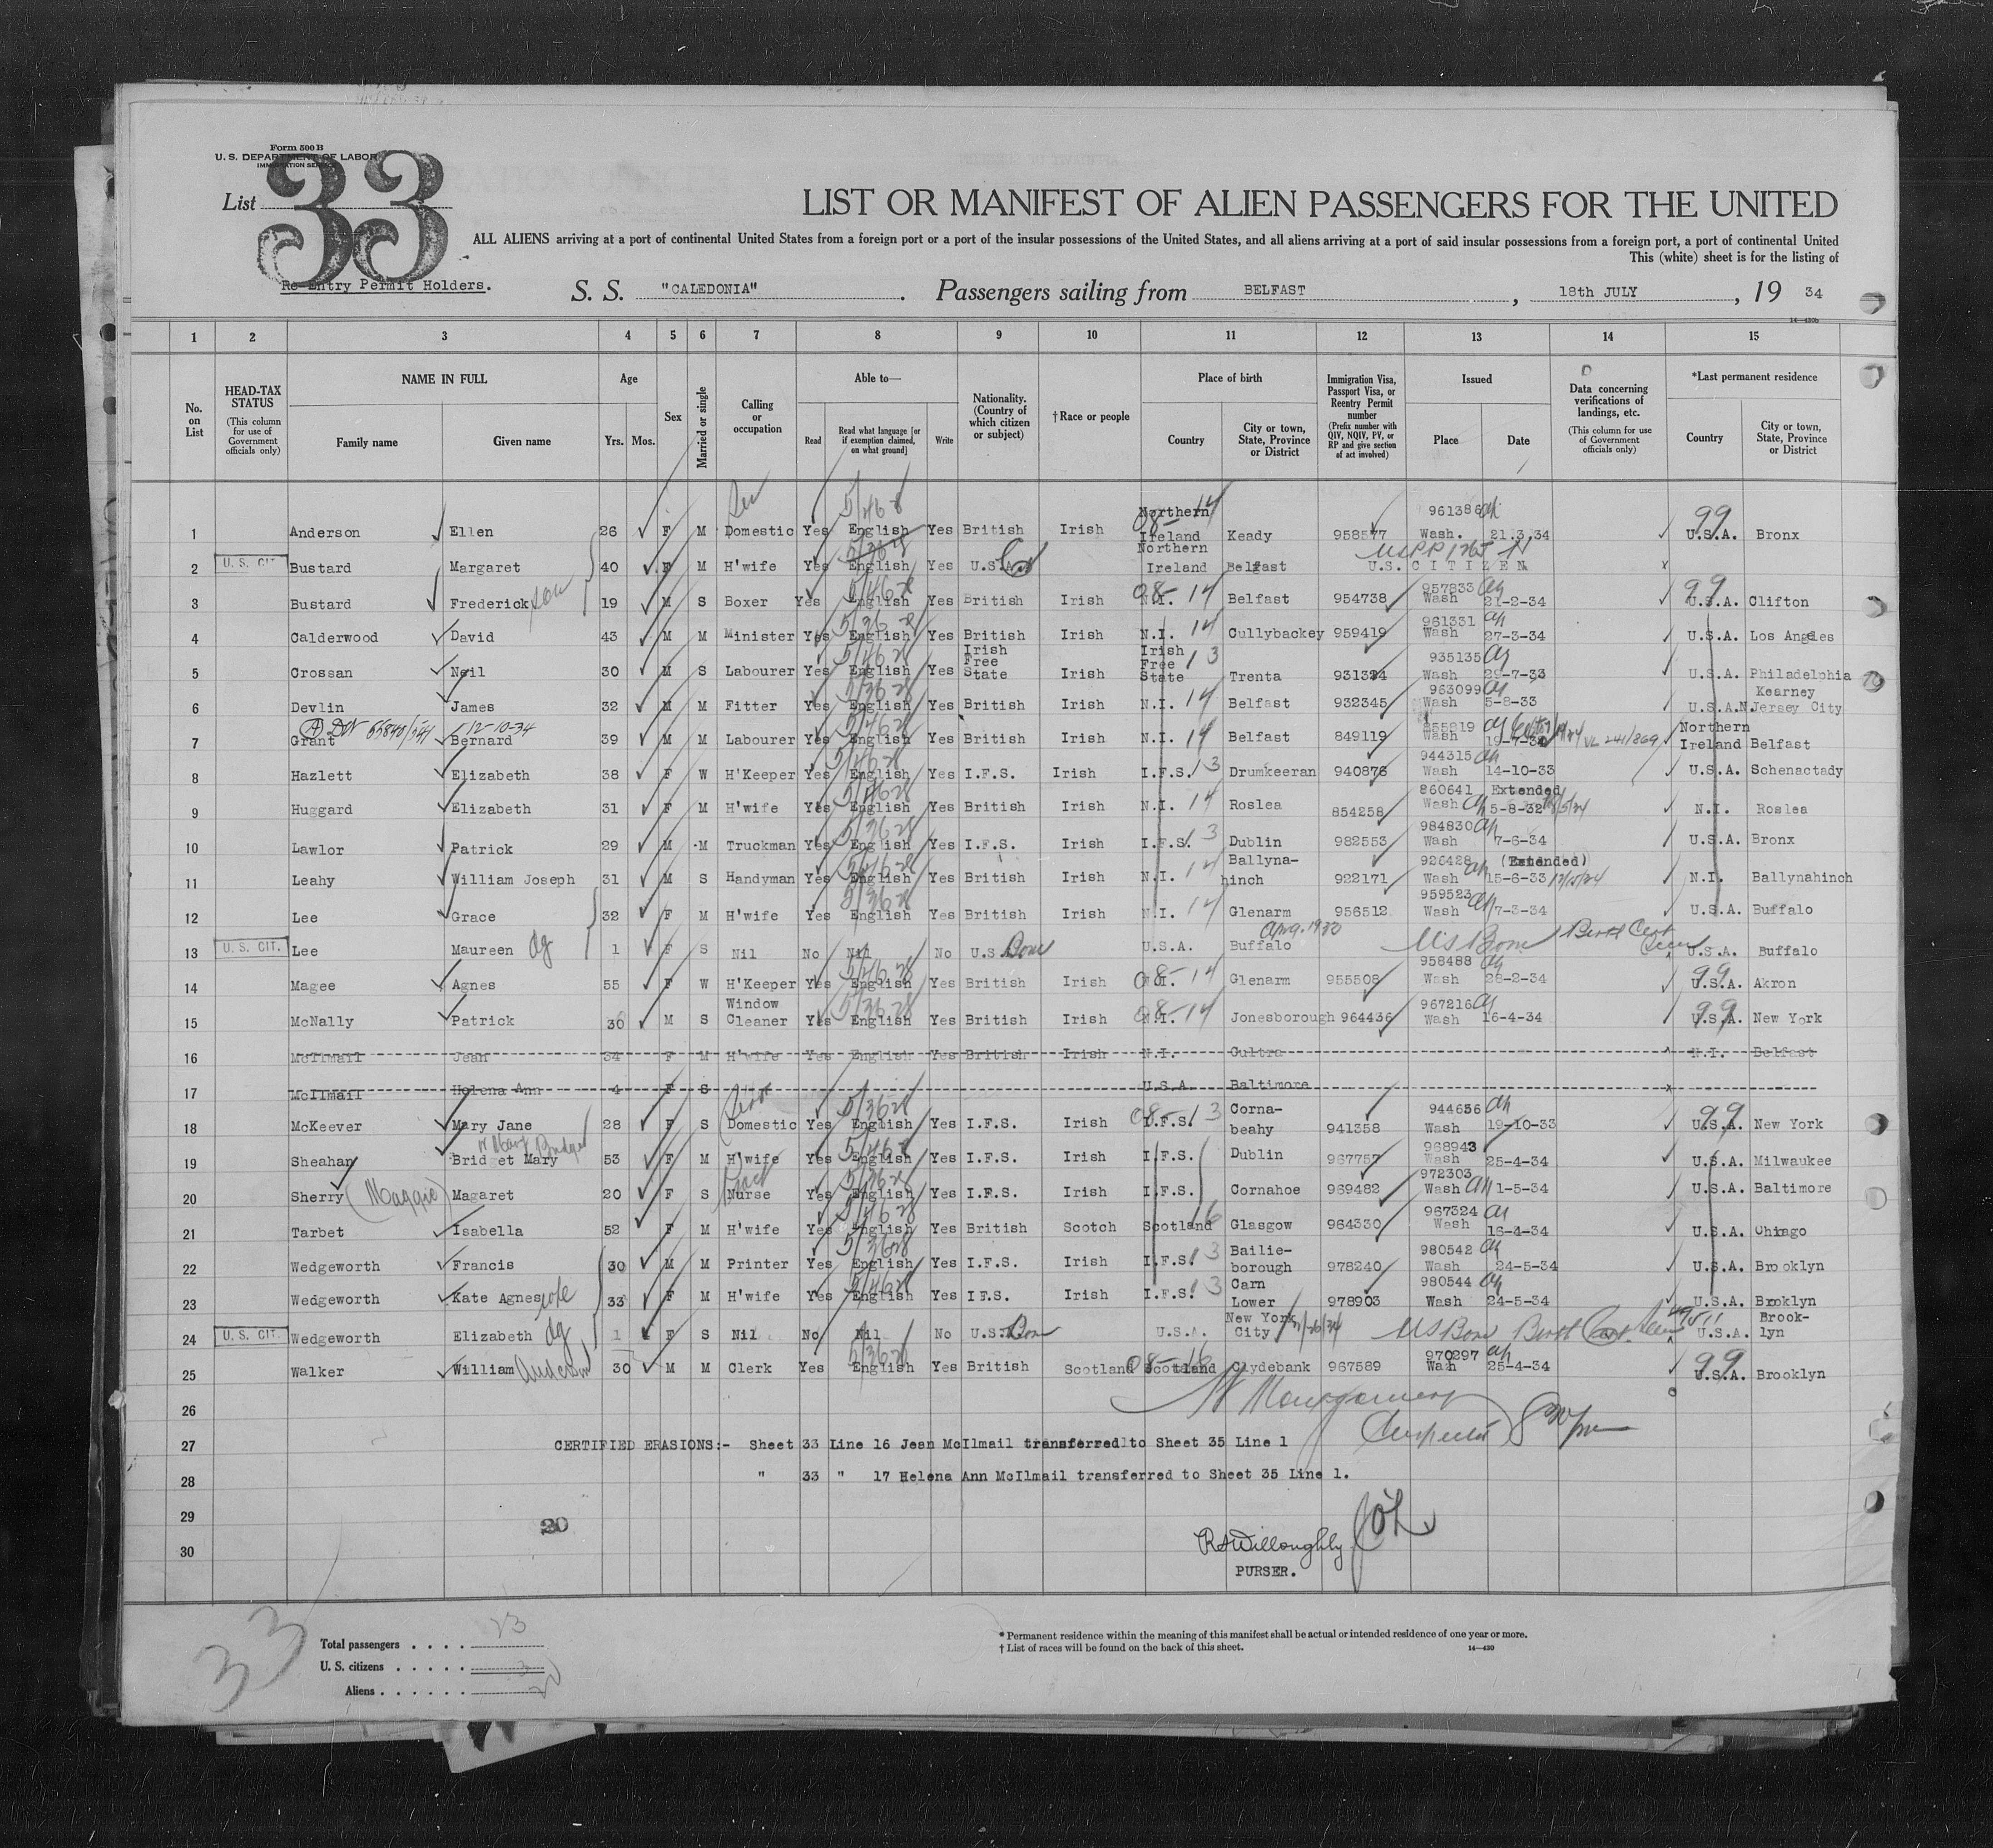 Form 500 B
U. S. DEPARTMENT OF LABOR
IMMIGRATION SERVICE
List 33
LIST OR MANIFEST OF ALIEN PASSENGERS FOR THE UNITED
ALL ALIENS arriving at a port of continental United States from a foreign port or a port of the insular possessions of the United States, and all aliens arriving at a port of said insular possessions from a foreign port, a port of continental United
This (white) sheet is for the listing of
Re-Entry Permit Holders.
S. S. "CALEDONIA" Passengers sailing from BELFAST, 18th JULY, 19 34
1 2 3 4 5 6 7 8 9 10 11 12 13 14 15
No. on List
HEAD-TAX STATUS (This column for use of Government officials only)
NAME IN FULL Family name Given name
Age Yrs. Mos.
Sex
Married or single
Calling or occupation
Able to— Read Read what language [or if exemption claimed, on what ground] Write
Nationality. (Country of which citizen or subject)
†Race or people
Place of birth Country City or town, State, Province or District
Immigration Visa, Passport Visa, or Reentry Permit number (Prefix number with QIV, NQIV, PV, or RP and give section of act involved)
Issued Place Date
Data concerning verifications of landings, etc. (This column for use of Government officials only)
*Last permanent residence Country City or town, State, Province or District
1 Anderson Ellen 26 F M Domestic Yes English Yes British Irish Northern Ireland Keady 958577 961386 Wash. 21.3.34 U.S.A. Bronx
2 U. S. CIT. Bustard Margaret 40 F M H'wife Yes English Yes U.S.A. Northern Ireland Belfast U.S. CITIZEN
3 Bustard Frederick son 19 M S Boxer Yes English Yes British Irish N.I. 14 Belfast 954738 957833 Wash 21-2-34 U.S.A. Clifton
4 Calderwood David 43 M M Minister Yes English Yes British Irish N.I. 14 Cullybackey 959419 961331 Wash 27-3-34 U.S.A. Los Angeles
5 Crossan Neil 30 M S Labourer Yes English Yes Irish Free State Irish Irish Free State 13 Trenta 931324 935135 Wash 29-7-33 U.S.A. Philadelphia
6 Devlin James 32 M M Fitter Yes English Yes British Irish N.I. 14 Belfast 932345 963099 Wash 5-8-33 U.S.A. Kearney N.Jersey City
12-10-34
7 Grant Bernard 39 M M Labourer Yes English Yes British Irish N.I. 14 Belfast 849119 855819 Wash 19-7-32 Northern Ireland Belfast
8 Hazlett Elizabeth 38 F W H'Keeper Yes English Yes I.F.S. Irish I.F.S. 13 Drumkeeran 940876 944315 Wash 14-10-33 U.S.A. Schenactady
9 Huggard Elizabeth 31 F M H'wife Yes English Yes British Irish N.I. 14 Roslea 854258 860641 Extended Wash 5-8-32 N.I. Roslea
10 Lawlor Patrick 29 M M Truckman Yes English Yes I.F.S. Irish I.F.S. 13 Dublin 982553 984830 Wash 7-6-34 U.S.A. Bronx
11 Leahy William Joseph 31 M S Handyman Yes English Yes British Irish N.I. 14 Ballyna-hinch 922171 926428 (Extended) Wash 15-6-33 N.I. Ballynahinch
12 Lee Grace 32 F M H'wife Yes English Yes British Irish N.I. 14 Glenarm 956512 959523 Wash 7-3-34 U.S.A. Buffalo
13 U. S. CIT. Lee Maureen dg 1 F S Nil No Nil No U.S. Born U.S.A. Buffalo US Born Birth Cert seen U.S.A. Buffalo
14 Magee Agnes 55 F W H'Keeper Yes English Yes British Irish N.I. 14 Glenarm 955508 958488 Wash 28-2-34 U.S.A. Akron
15 McNally Patrick 30 M S Window Cleaner Yes English Yes British Irish N.I. 14 Jonesborough 964436 967216 Wash 16-4-34 U.S.A. New York
16 McIlmail Jean 34 F M H'wife Yes English Yes British Irish N.I. Cultra N.I. Belfast
17 McIlmail Helena Ann 4 F S U.S.A. Baltimore
18 McKeever Mary Jane 28 F S Domestic Yes English Yes I.F.S. Irish I.F.S. 13 Corna-beahy 941358 944656 Wash 19-10-33 U.S.A. New York
19 Sheahan Bridget Mary 53 F M H'wife Yes English Yes I.F.S. Irish I.F.S. Dublin 967757 968943 Wash 25-4-34 U.S.A. Milwaukee
20 Sherry (Maggie) Magaret 20 F S Nurse Yes English Yes I.F.S. Irish I.F.S. Cornahoe 969482 972303 Wash 1-5-34 U.S.A. Baltimore
21 Tarbet Isabella 52 F M H'wife Yes English Yes British Scotch Scotland Glasgow 964330 967324 Wash 16-4-34 U.S.A. Chicago
22 Wedgeworth Francis 30 M M Printer Yes English Yes I.F.S. Irish I.F.S. 13 Bailie-borough 978240 980542 Wash 24-5-34 U.S.A. Brooklyn
23 Wedgeworth Kate Agnes wfe 33 F M H'wife Yes English Yes I.F.S. Irish I.F.S. 13 Carn Lower 978903 980544 Wash 24-5-34 U.S.A. Brooklyn
24 U. S. CIT. Wedgeworth Elizabeth dg 1 F S Nil No Nil No U.S. Born U.S.A. New York City US Born Birth Cert. seen U.S.A. Brook-lyn
25 Walker William Anderson 30 M M Clerk Yes English Yes British Scotland Scotland Clydebank 967589 970297 Wash 25-4-34 U.S.A. Brooklyn
26 Montgomery
27 CERTIFIED ERASIONS:- Sheet 33 Line 16 Jean McIlmail transferred to Sheet 35 Line 1 Inspector
28 " 33 " 17 Helena Ann McIlmail transferred to Sheet 35 Line 1.
29 20
30 Willoughby
PURSER.
33
Total passengers . . . . 23
U. S. citizens . . . . . 3
Aliens . . . . . . 20
* Permanent residence within the meaning of this manifest shall be actual or intended residence of one year or more.
† List of races will be found on the back of this sheet.
14—430